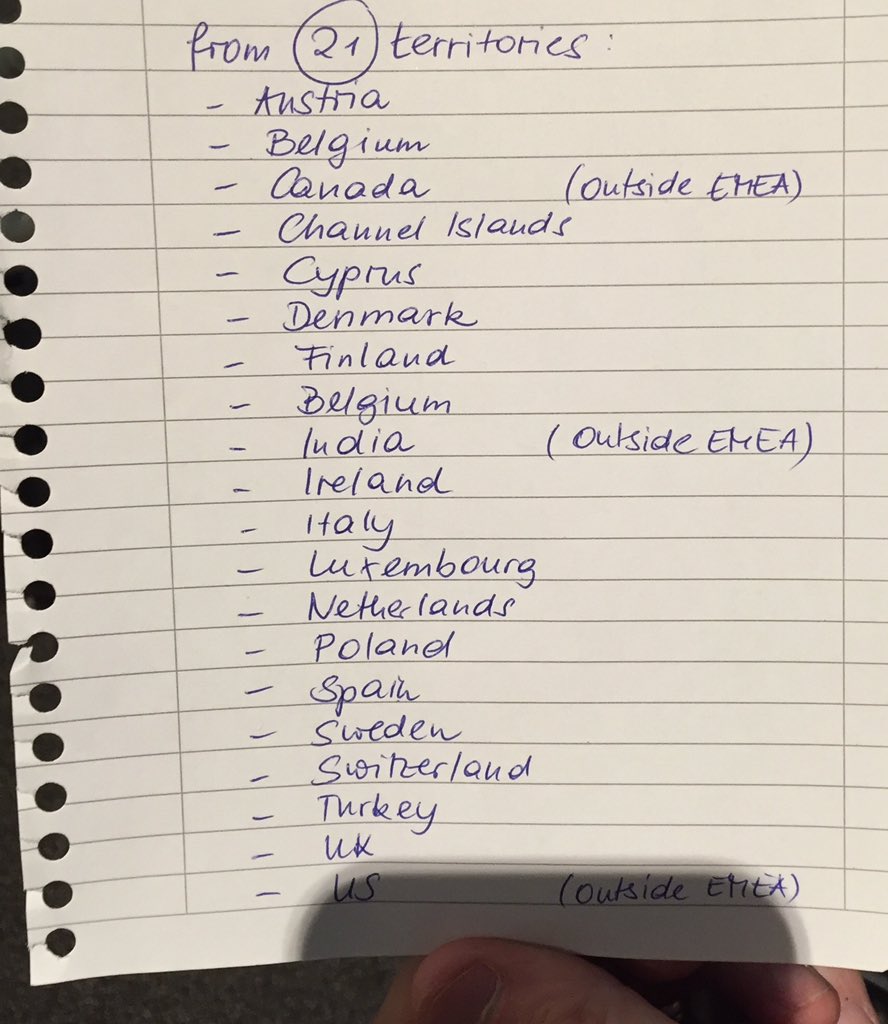 from 21 territories:
- Austria
- Belgium
- Canada (outside EMEA)
- Channel Islands
- Cyprus
- Denmark
- Finland
- Belgium
- India (outside EMEA)
- Ireland
- Italy
- Luxembourg
- Netherlands
- Poland
- Spain
- Sweden
- Switzerland
- Turkey
- UK
- US (outside EMEA)